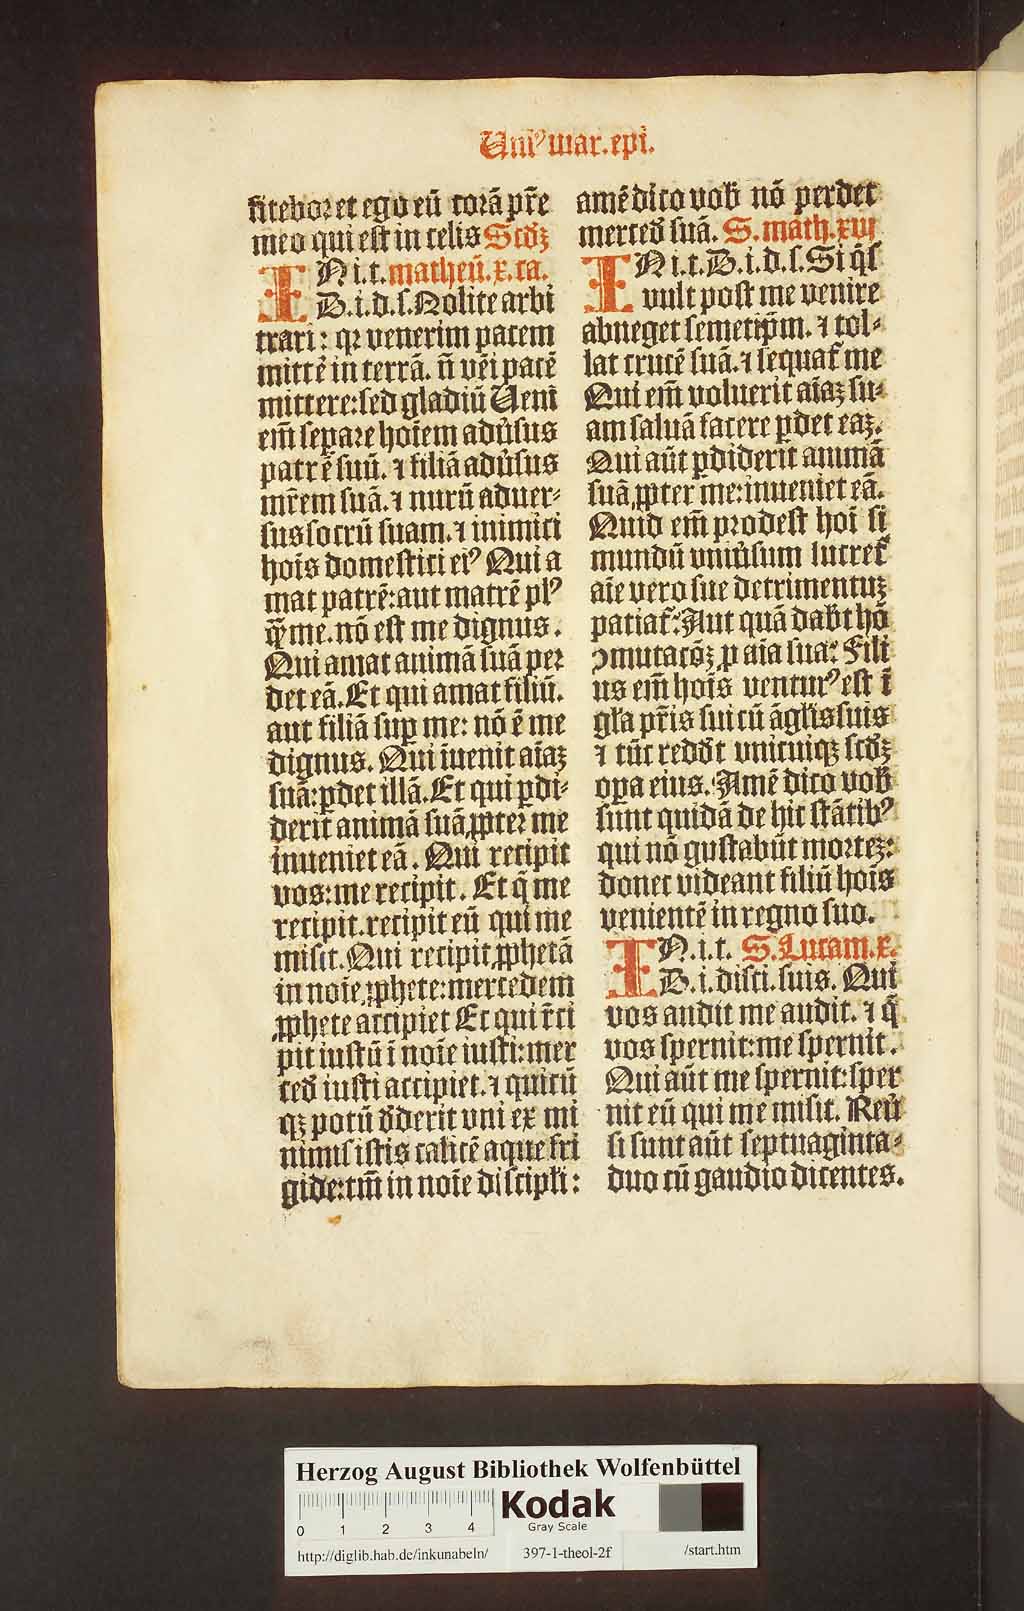 Uniꝰ mar. epi.
fitebor et ego eū corā pr̄e
meo qui est in celis Scd̄ꝫ
IN i. t. matheū. x. ca.
D. i. d. s. Nolite arbi
trari: qꝛ venerim pacem
mittē in terrā. n̄ vēi pacē
mittere: sed gladiū Ueni
em̄ sepaꝛe hoīem adv̄sus
patrē suū. ⁊ filiā adv̄sus
mr̄em suā. ⁊ nurū aduer⸗
sus socrū suam. ⁊ inimici
hoīs domestici eiꝰ Qui a
mat patrē: aut matrē plꝰ
q̄ me. nō est me dignus.
Qui amat animā suā per
det eā. Et qui amat filiū.
aut filiā suꝑ me: nō ē me
dignus. Qui īuenit aīaꝫ
suā: ꝑdet illā. Et qui ꝑdi⸗
derit animā suā ꝓpter me
inueniet eā. Qui recipit
vos: me recipit. Et q̄ me
recipit. recipit eū qui me
misit. Qui recipit ꝓphetā
in noīe ꝓphete: mercedem
ꝓphete accipiet Et qui r̄ci
pit iustū ī noīe iusti: mer
ced̄ iusti accipiet. ⁊ quicū
qꝫ potū d̄derit vni ex mi
nimis istis calicē aque fri
gide: tm̄ in noīe discipli:
amē dico vob̄ nō perdet
merced̄ suā. S. math. xvi
IN i. t. D. i. d. s. Si q̄s
vult post me venire
abneget semetip̄m. ⁊ tol⸗
lat crucē suā. ⁊ sequat᷑ me
Qui em̄ voluerit aīaꝫ su⸗
am saluā facere ꝑdet eaꝫ.
Qui aūt ꝑdiderit animā
suā ꝓpter me: inueniet eā.
Quid em̄ prodest hoī si
mundū vniv̄sum lucret᷑
aīe vero sue detrimentuꝫ
patiat᷑: Aut quā dab̄t hō
ꝯmutacōꝫ ꝓ aīa sua: Fili
us em̄ hoīs venturꝰ est ī
gl̄a pr̄is sui cū āgl̄is suis
⁊ tūc redd̄t vnicuiqꝫ scd̄ꝫ
oꝑa eius. Amē dico vob̄
sunt quidā de hic stātibꝰ
qui nō gustabūt morteꝫ:
donec videant filiū hoīs
venientē in regno suo.
IN. i. t. S. Lucam. x.
D. i. disci. suis. Qui
vos audit me audit. ⁊ q̄
vos spernit: me spernit.
Qui aūt me spernit: sper
nit eū qui me misit. Reū
si sunt aūt septuaginta⸗
duo cū gaudio dicentes.
Herzog August Bibliothek Wolfenbüttel
0 1 2 3 4
Kodak
Gray Scale
http://diglib.hab.de/inkunabeln/ 397-1-theol-2f /start.htm